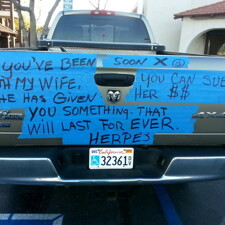 YOU'VE BEEN SOON X @
MY WIFE, YOU CAN SUE
HE HAS GIVEN HER $$
YOU SOMETHING. THAT
Will LAST FOR EVER.
HERPES
California
32361